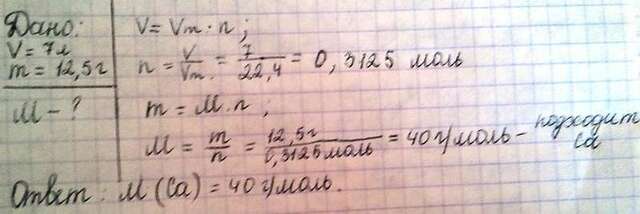 Дано:
V = 7л
m = 12,5г
М - ?
V = Vm · n ;
n = V/Vm = 7/22,4 = 0,3125 моль
m = M · n ;
M = m/n = 12,5г/0,3125моль = 40г/моль - подходит Ca
Ответ: М (Ca) = 40г/моль.